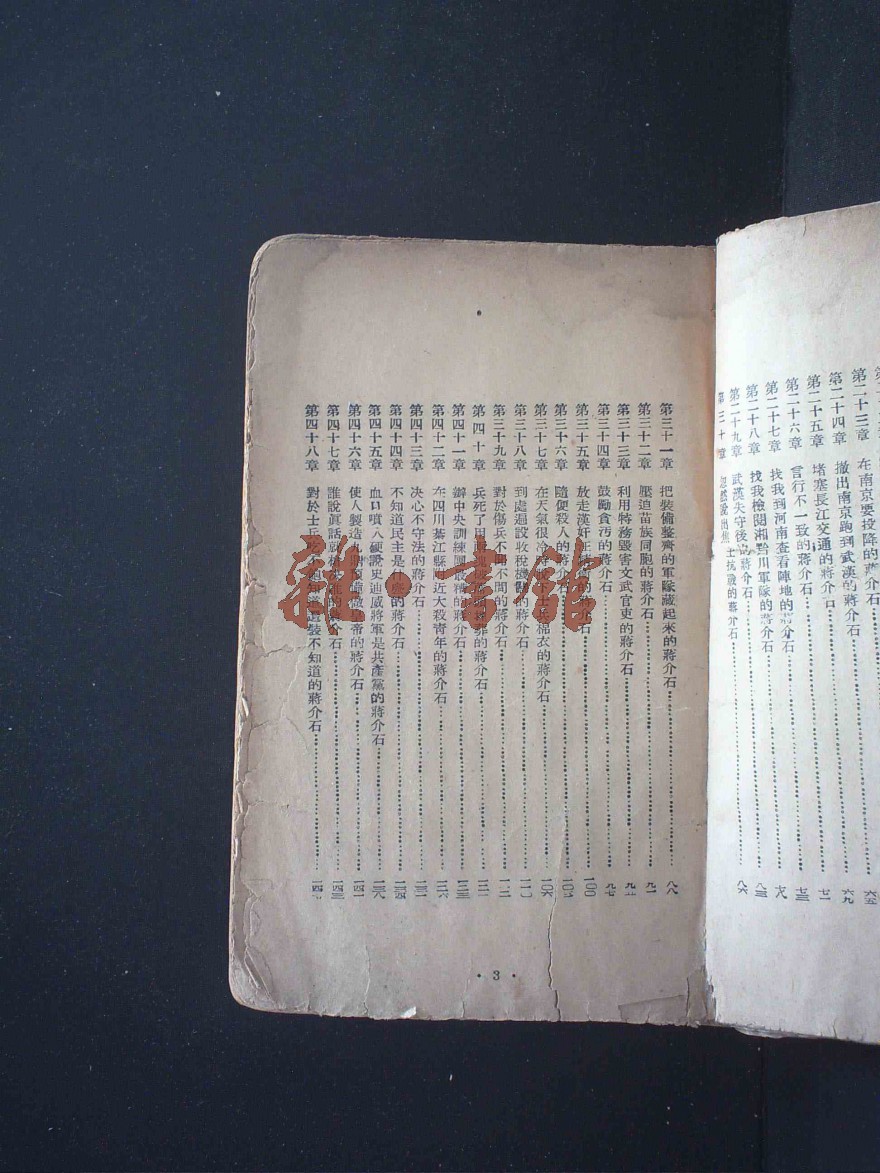 第二十三章 在南京要投降的 六五
第二十四章 撤出南京跑到武漢的蔣介石 六九
第二十五章 堵塞長江交通的蔣介石
第二十六章 言行不一致的蔣介石 七三
第二十七章 找我到河南查看陣地的蔣介石 七八
第二十八章 找我檢閱湘黔川軍隊的蔣介石 八三
第二十九章 武漢失守後的蔣介石 八六
第三十章 忽然發出焦土抗戰的蔣介石
第三十一章 把裝備整齊的軍隊藏起來的蔣介石 八八
第三十二章 壓迫苗族同胞的蔣介石 九一
第三十三章 利用特務毀害文武官吏的蔣介石
第三十四章 鼓勵貪污的蔣介石 九七
第三十五章 放走漢奸 蔣介石 一〇〇
第三十六章 隨便殺人的蔣介石
第三十七章 在天氣很冷時 士兵棉衣的蔣介石 一〇六
第三十八章 到處遍設收稅機關的蔣介石 一一〇
第三十九章 對於傷兵不聞不問的蔣介石
第四十章 兵死了 的蔣介石
第四十一章 辦中央訓練團最糟的蔣介石
第四十二章 在四川綦江縣附近大殺青年的蔣介石 一二六
第四十三章 决心不守法的蔣介石
第四十四章 不知道民主是什麽的蔣介石
第四十五章 血口噴人硬說史迪威將軍是共產黨的蔣介石 一三八
第四十六章 使人製造九鼎 皇帝的蔣介石
第四十七章 誰說真話就槍 誰的蔣介石 一四三
第四十八章 對於士兵吃不飽知道還裝不知道的蔣介石
· 3 ·
雜·書館